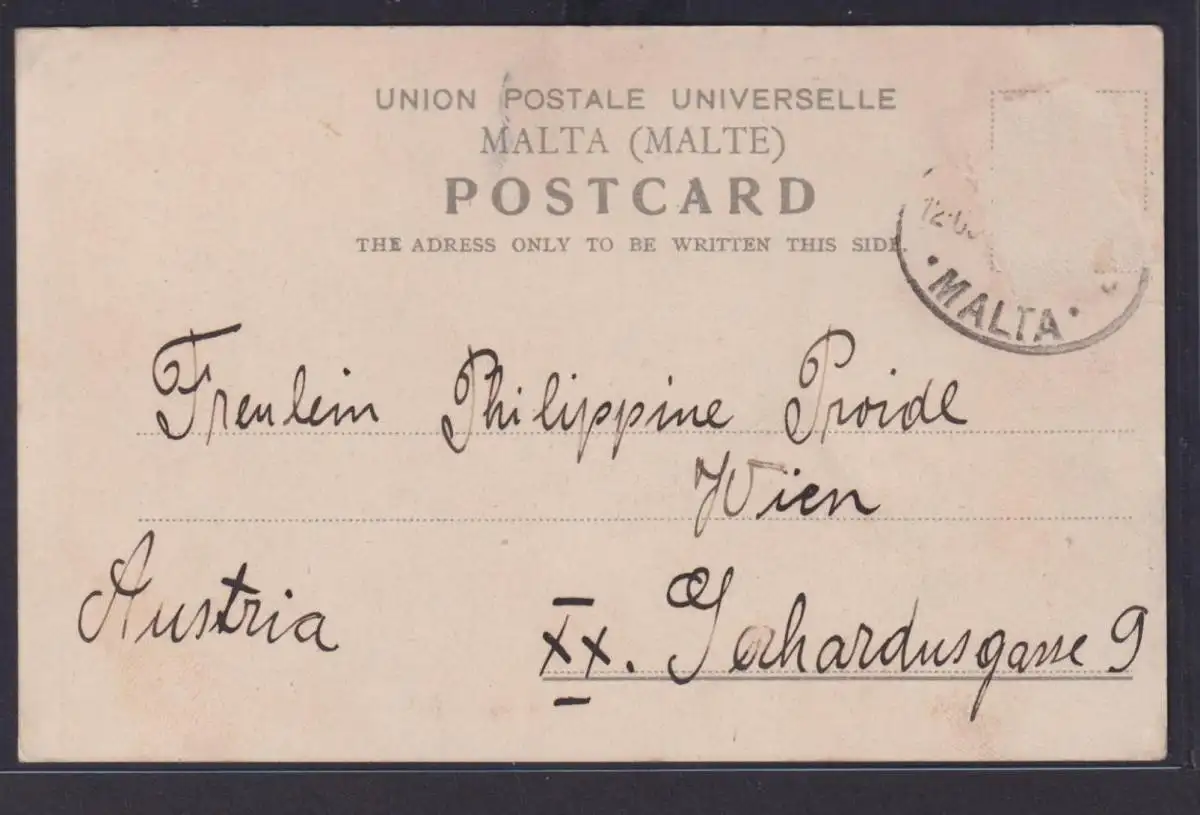 UNION POSTALE UNIVERSELLE
MALTA (MALTE)
POSTCARD
THE ADRESS ONLY TO BE WRITTEN THIS SIDE.
· MALTA ·
Freulein Philippine Proidl
Wien
Austria
XX. Gerhardusgasse 9